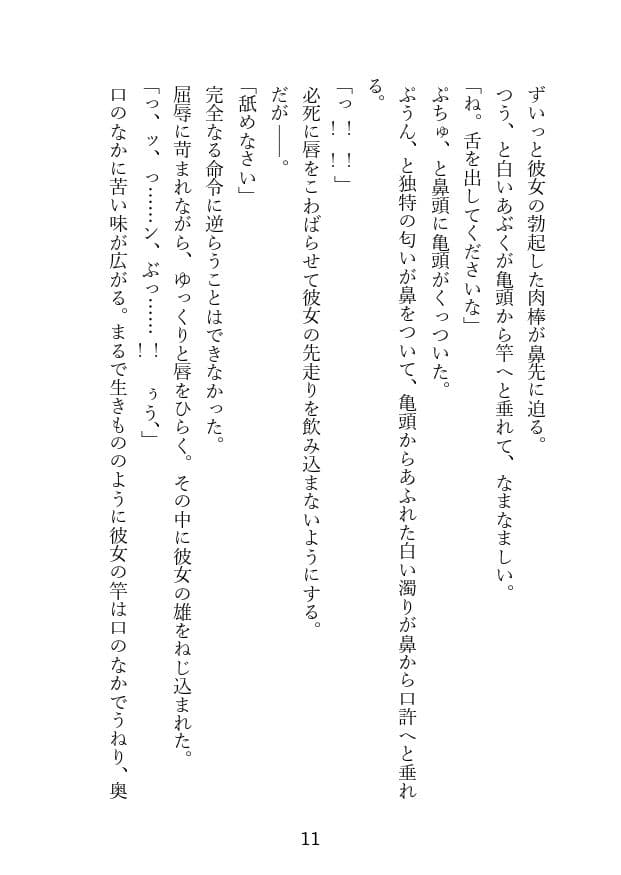 ずいっと彼女の勃起した肉棒が鼻先に迫る。
つう、と白いあぶくが亀頭から竿へと垂れて、なまなましい。
「ね。舌を出してくださいな」
ぷちゅ、と鼻頭に亀頭がくっついた。
ぷうん、と独特の匂いが鼻をついて、亀頭からあふれた白い濁りが鼻から口許へと垂れ
る。
「っ！！！」
必死に唇をこわばらせて彼女の先走りを飲み込まないようにする。
だが――。
「舐めなさい」
完全なる命令に逆らうことはできなかった。
屈辱に苛まれながら、ゆっくりと唇をひらく。その中に彼女の雄をねじ込まれた。
「っ、ッ、っ……ン、ぶっ……！！　ぅう、」
口のなかに苦い味が広がる。まるで生きもののように彼女の竿は口のなかでうねり、奥
11